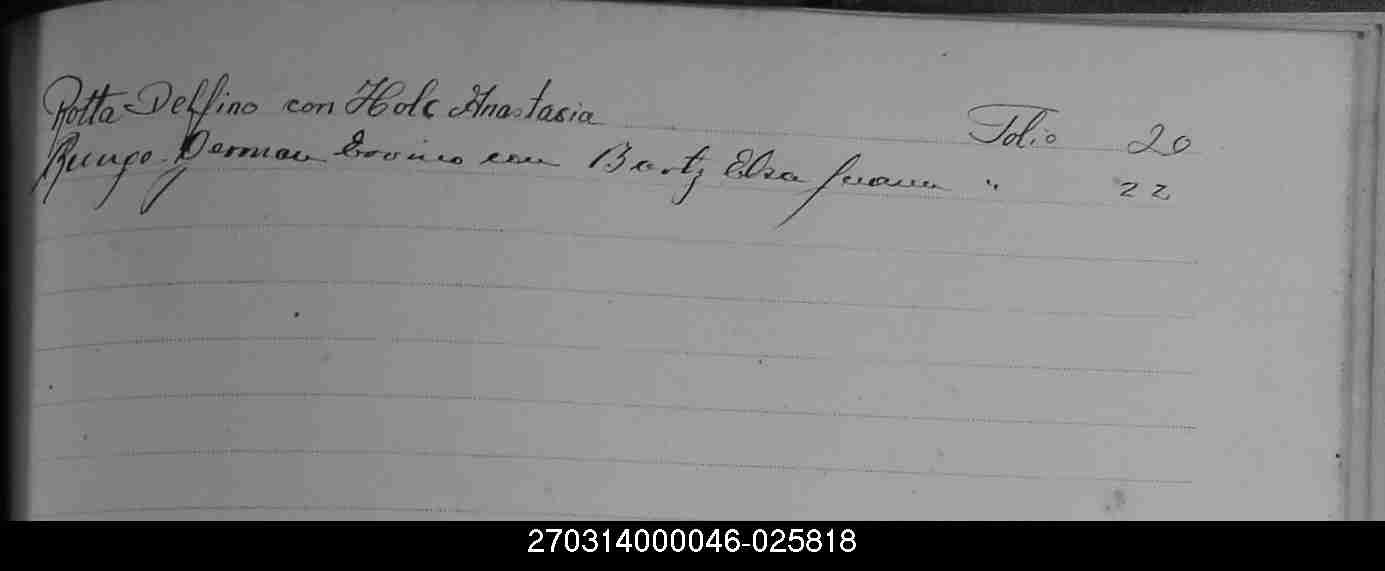 Rotta Delfino con Holc Anastasia Folio 20
Runge German Erovino con Bartz Elsa Juana " 22
270314000046-025818